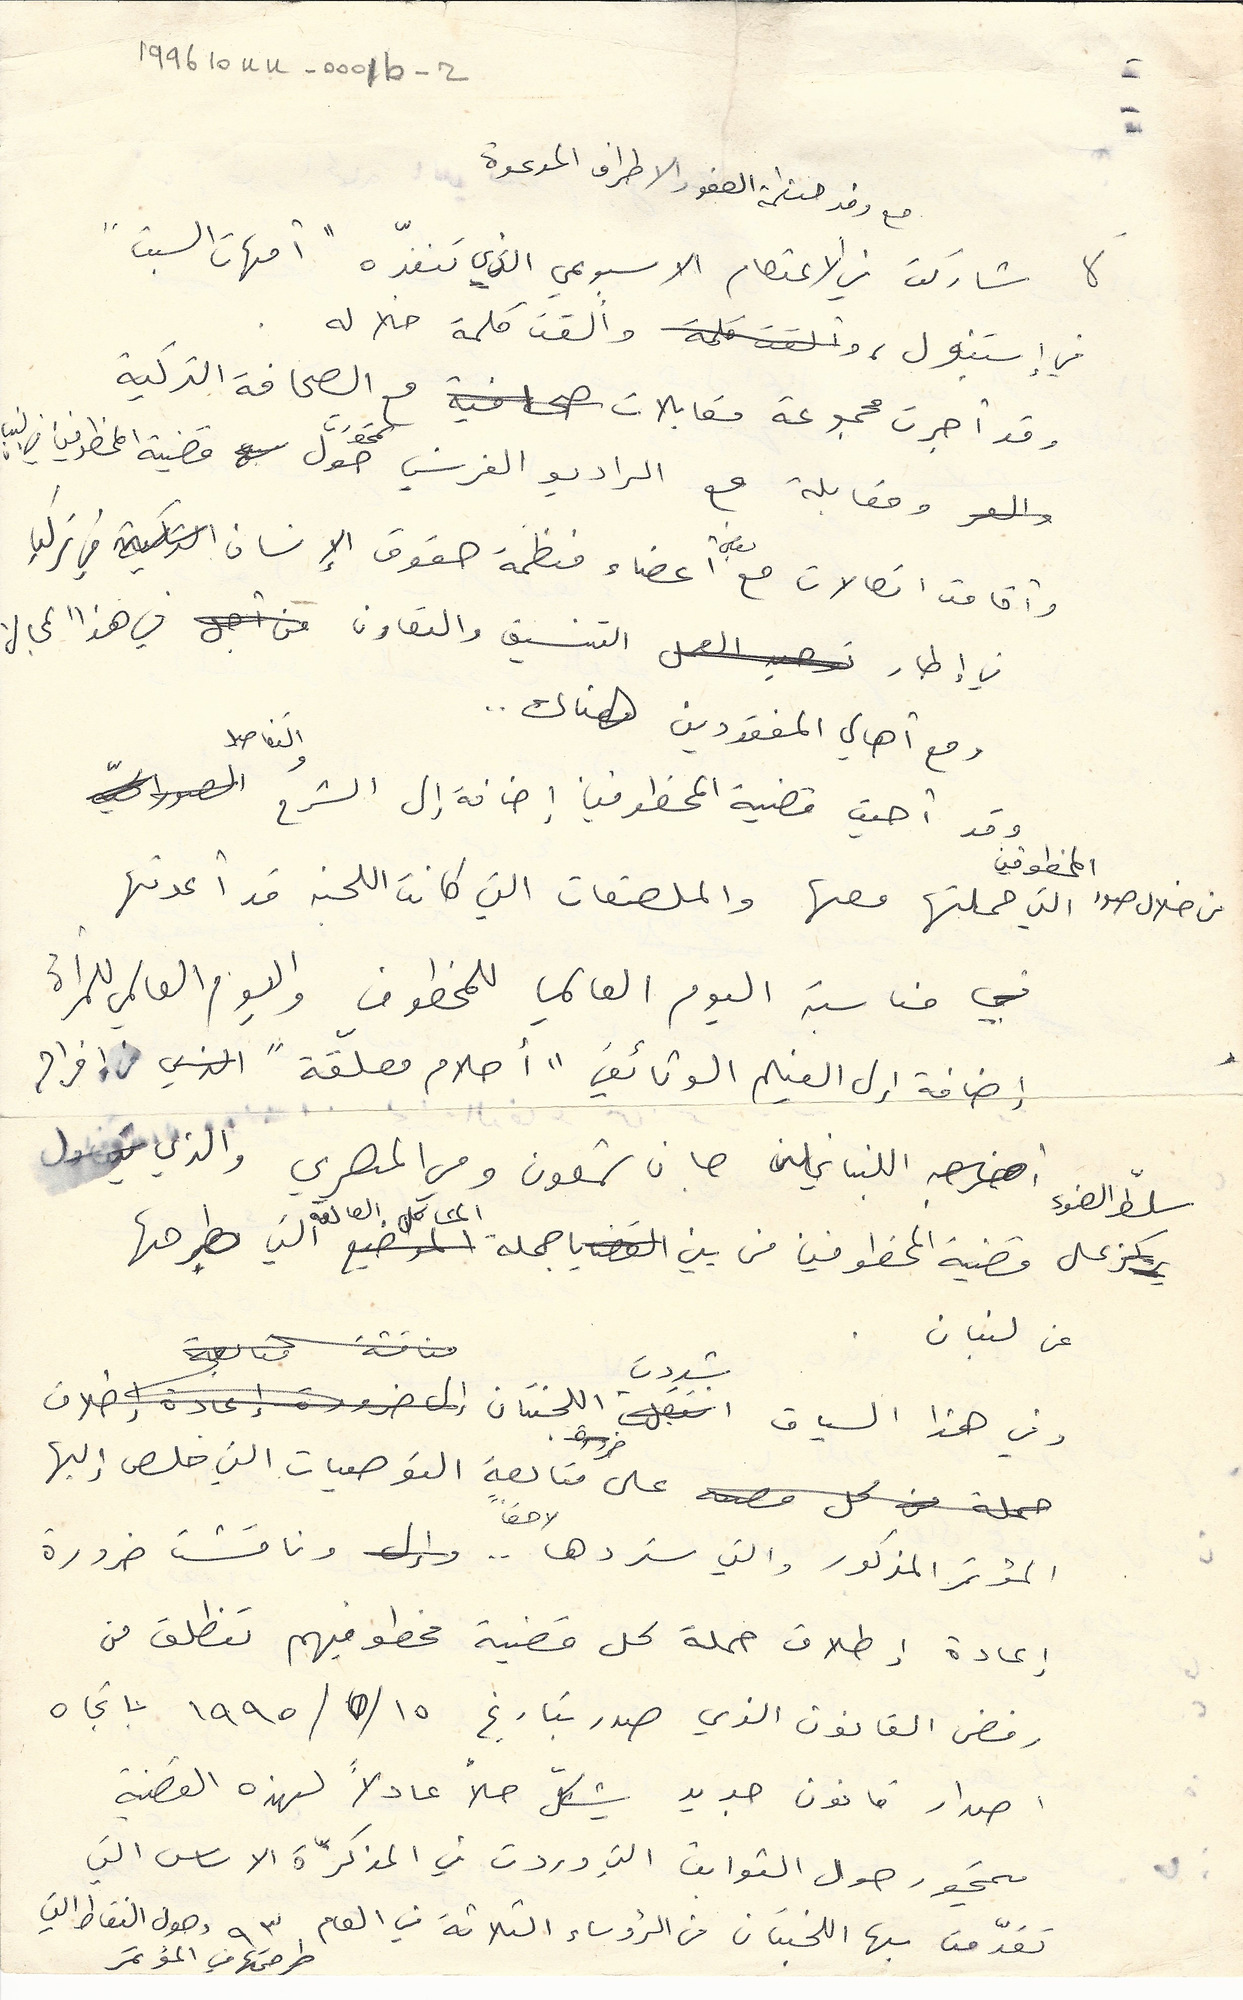 199610uu-0001b-2
مع وفد منظمة العفو والاطراف المدعوة
كما شاركت في الاعتصام الاسبوعي الذي تنفذّه "أمهات السبت"
في إستنبول، وألقت كلمة وألقت كلمة خلاله .
وقد أجرت مجموعة مقابلات صحافية مع الصحافة التركية
ومقابلة مع الراديو الفرنسي تمحورت حول قضية المخطوفين في لبنان
وأقامت اتصالات مع بعض أعضاء منظمة حقوق الإنسان التركية في تركيا
في إطار توحيد العمل التنسيق والتعاون من أجل في هذا المجال
ومع أهالي المفقودين هناك ..
وقد أحيت قضية المخطوفين إضافة إلى الشرح والتفاصيل
من خلال صور المخطوفين التي حملتها معها والملصقات التي كانت اللجنة قد أعدتها
في مناسبة اليوم العالمي للمخطوف واليوم العالمي للمرأة
إضافة إلى الفيلم الوثائقي "أحلام معلّقة" الذي من إخراج
أخرجه اللبنانيين جان شمعون ومي المصري والذي
سلّط الضوء
يركز على قضية المخطوفين من بين القضايا جملة المواضيع المشاكل العالقة التي طرحها
عن لبنان .
مناقشة متابعة
وفي هذا السياق شددت اللجنتان إلى ضرورة إعادة إطلاق
حملة من كل على ضرورة متابعة التوصيات التي خلص إليها
المؤتمر المذكور والتي سنردها لاحقاً .. وإلى وناقشت ضرورة
إعادة إطلاق حملة لحل قضية مخطوفيهم تنطلق من
رفض القانون الذي صدر بتاريخ ١٥/ /١٩٩٥ باتجاه
اصدار قانون جديد يشكّل حلاً عادلاً لهذه القضية
يتمحور حول الثوابت التي وردت في المذكرّة الاساس التي
تقدّمت بها اللجنتان من الرؤساء الثلاثة في العام ٩٣ وحول النقاط التي
طرحتها في المؤتمر